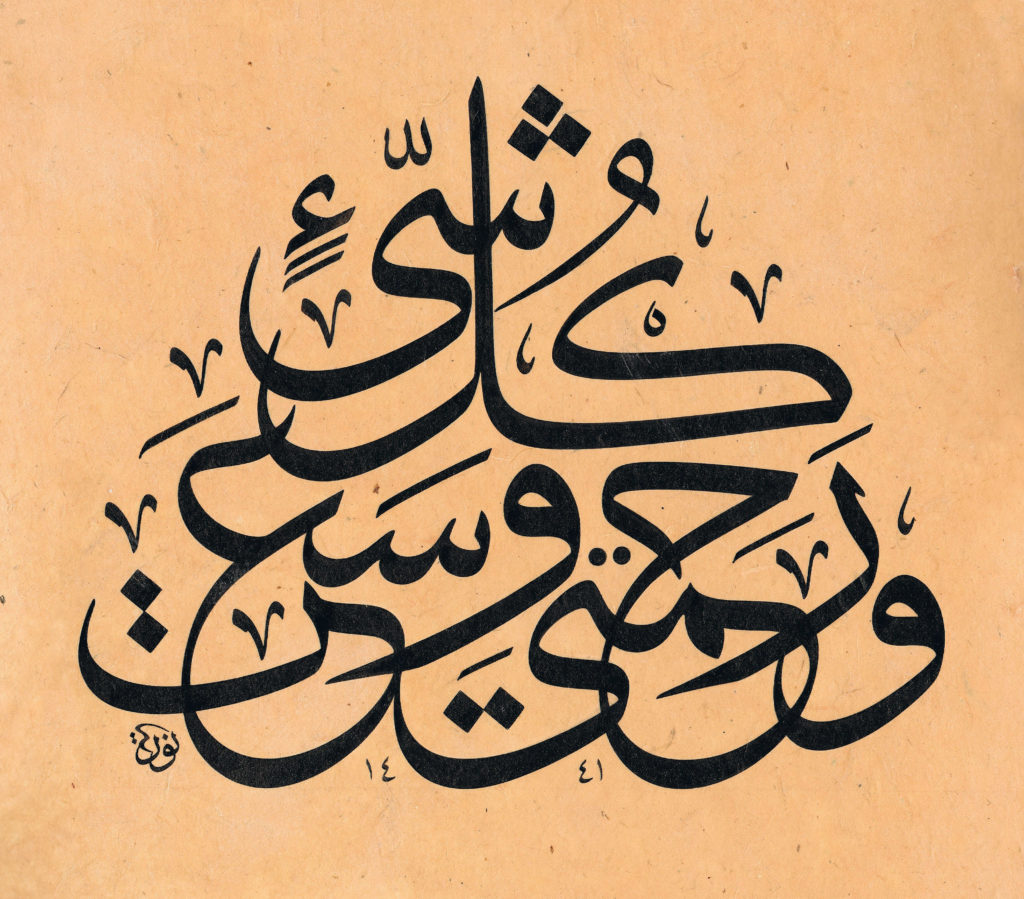 ورحمتي وسعت
كل شيء
نورية
١٤ ٤١